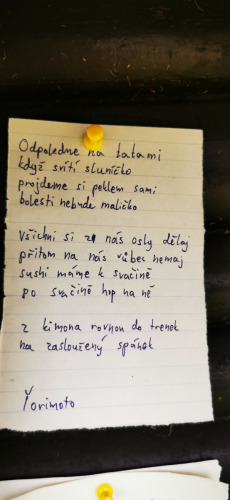 Odpoledne na tatami
když svítí sluníčko
projdeme si peklem sami
bolesti nebude maličko
Všichni si z nás osly dělaj
přitom na nás vůbec nemaj
sushi máme k svačině
po svačině hop na ně
z kimona rovnou do trenek
na zasloužený spánek
Yorimoto